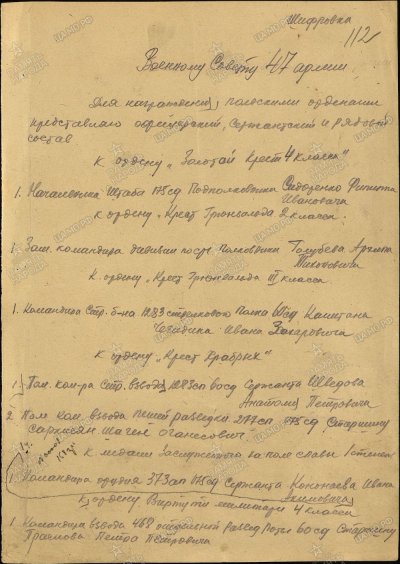 Шифровка
112
Военному Совету 47 армии
Для награждения польскими орденами
представляю офицерский, сержантский и рядовой
состав
К ордену „Золотой Крест 4 класса"
1. Начальника Штаба 175сд Подполковника Сидоренко Филиппа
Ивановича
К ордену „Крест Грюнвальда 2 класса.
1. Зам. командира дивизии Полковника Голубева
Тихоновича
К ордену „Крест Грюнвальда III класса
1. Командира Стр. б-на 1283 стрелкового Полка Капитана
Ивана Захаровича
К ордену „Крест Храбрых"
1. Пом. ком-ра Стр. взвода 1283сп сержанта Шведова
Анатолия Петровича
2. Пом. ком. взвода пешей разведки 277сп 175сд Старшину
Саркисян Оганесович.
К медали Заслуженного на поле славы I степени
1. Командира орудия 373ап 175сд Сержанта Ивана
К ордену Виртути милитари 4 класса
1. Командира взвода 468 развед роты Старшину
Петра Петровича